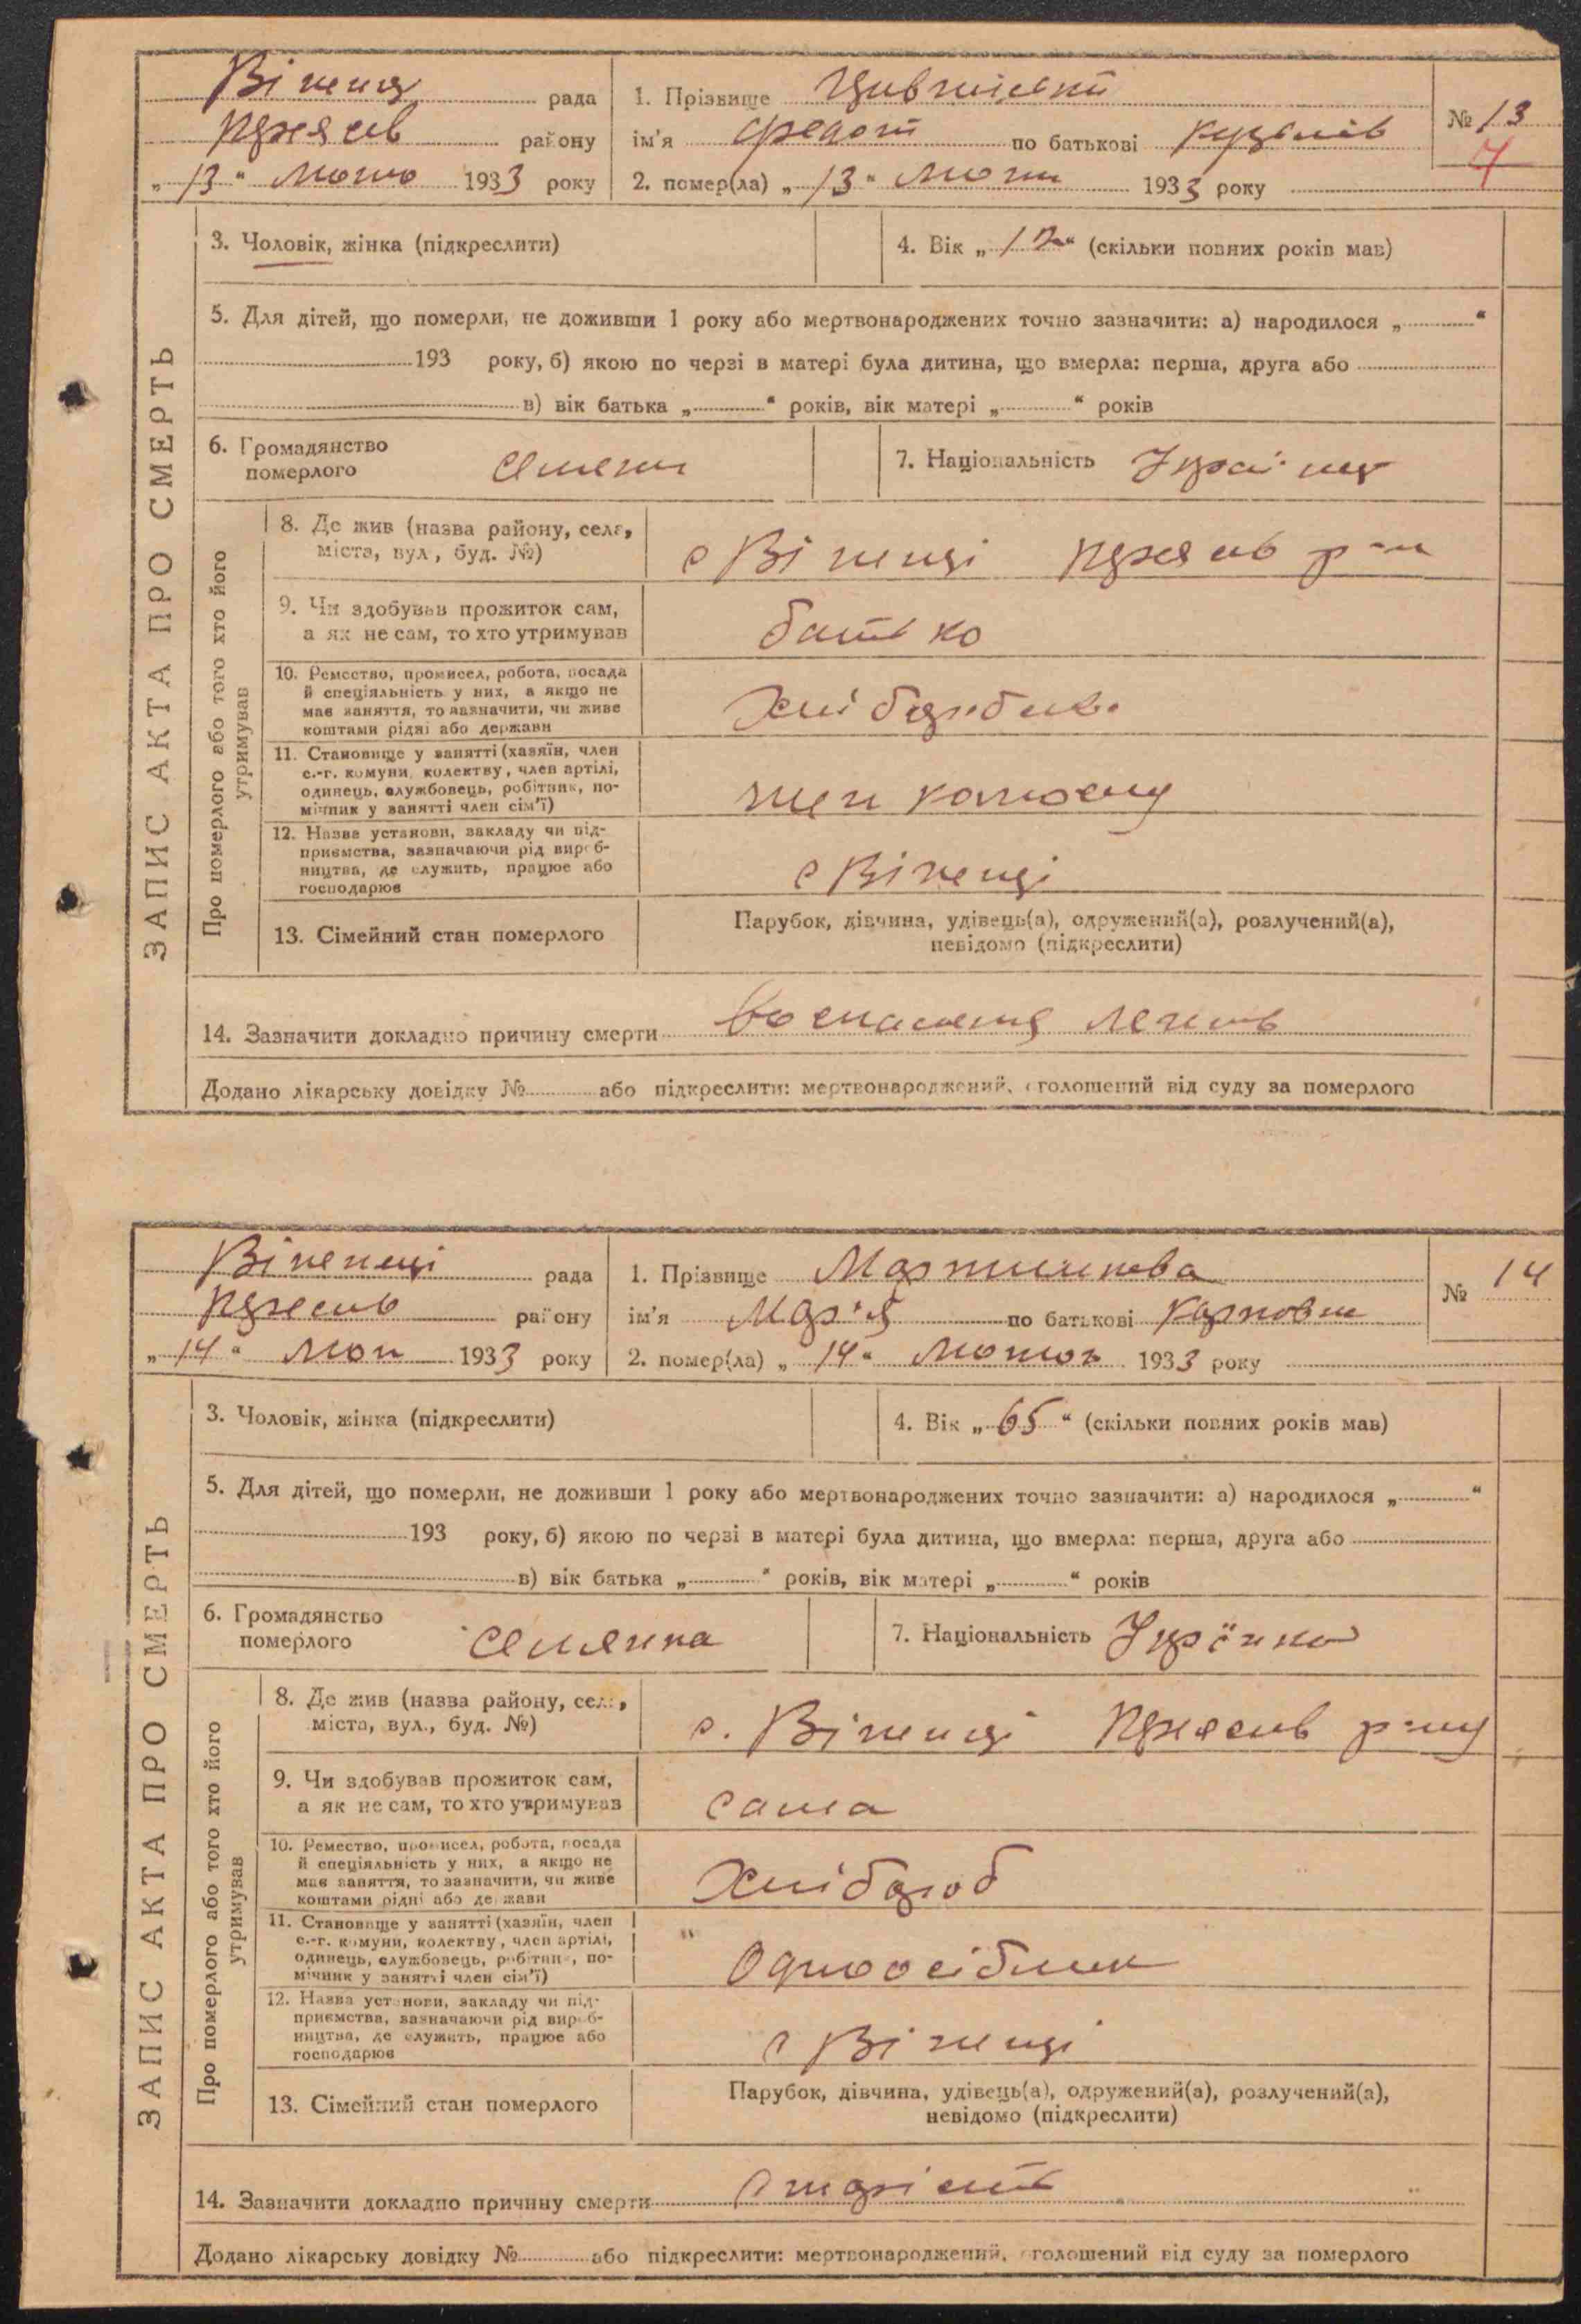 ЗАПИС АКТА ПРО СМЕРТЬ
рада
району
„ 13 “ 1933 року
1. Прізвище
ім'я Федот по батькові
2. помер(ла) „ 13 “ 1933 року
№ 13
3. Чоловік, жінка (підкреслити)
4. Вік „ “ (скільки повних років мав)
5. Для дітей, що померли, не доживши 1 року або мертвонароджених точно зазначити: а) народилося „ “
193 року, б) якою по черзі в матері була дитина, що вмерла: перша, друга або
в) вік батька „ “ років, вік матері „ “ років
6. Громадянство
померлого
7. Національність
Про померлого або того хто його
утримував
8. Де жив (назва району, села,
міста, вул., буд. №)
с р-н
9. Чи здобував прожиток сам,
а як не сам, то хто утримував
батько
10. Ремество, промисел, робота, посада
й спеціяльність у них, а якщо не
має заняття, то зазначити, чи живе
коштами рідні або держави
11. Становище у занятті (хазяїн, член
с.-г. комуни, колектву, член артілі,
одинець, службовець, робітник, по-
мічник у занятті член сім'ї)
член колгоспу
12. Назва установи, закладу чи під-
приємства, зазначаючи рід вироб-
ництва, де служить, працює або
господарює
с
13. Сімейний стан померлого
Парубок, дівчина, удівець(а), одружений(а), розлучений(а),
невідомо (підкреслити)
14. Зазначити докладно причину смерти
Додано лікарську довідку № або підкреслити: мертвонароджений, оголошений від суду за померлого
ЗАПИС АКТА ПРО СМЕРТЬ
рада
району
„ 14 “ 1933 року
1. Прізвище
ім'я Мар'я по батькові Карповна
2. помер(ла) „ 14 “ 1933 року
№ 14
3. Чоловік, жінка (підкреслити)
4. Вік „ 65 “ (скільки повних років мав)
5. Для дітей, що померли, не доживши 1 року або мертвонароджених точно зазначити: а) народилося „ “
193 року, б) якою по черзі в матері була дитина, що вмерла: перша, друга або
в) вік батька „ “ років, вік матері „ “ років
6. Громадянство
померлого
селянка
7. Національність
Про померлого або того хто його
утримував
8. Де жив (назва району, села,
міста, вул., буд. №)
с. р-ну
9. Чи здобував прожиток сам,
а як не сам, то хто утримував
сама
10. Ремество, промисел, робота, посада
й спеціяльність у них, а якщо не
має заняття, то зазначити, чи живе
коштами рідні або держави
Хлібороб
11. Становище у занятті (хазяїн, член
с.-г. комуни, колектву, член артілі,
одинець, службовець, робітник, по-
мічник у занятті член сім'ї)
Одноосібник
12. Назва установи, закладу чи під-
приємства, зазначаючи рід вироб-
ництва, де служить, працює або
господарює
с
13. Сімейний стан померлого
Парубок, дівчина, удівець(а), одружений(а), розлучений(а),
невідомо (підкреслити)
14. Зазначити докладно причину смерти старість
Додано лікарську довідку № або підкреслити: мертвонароджений, оголошений від суду за померлого